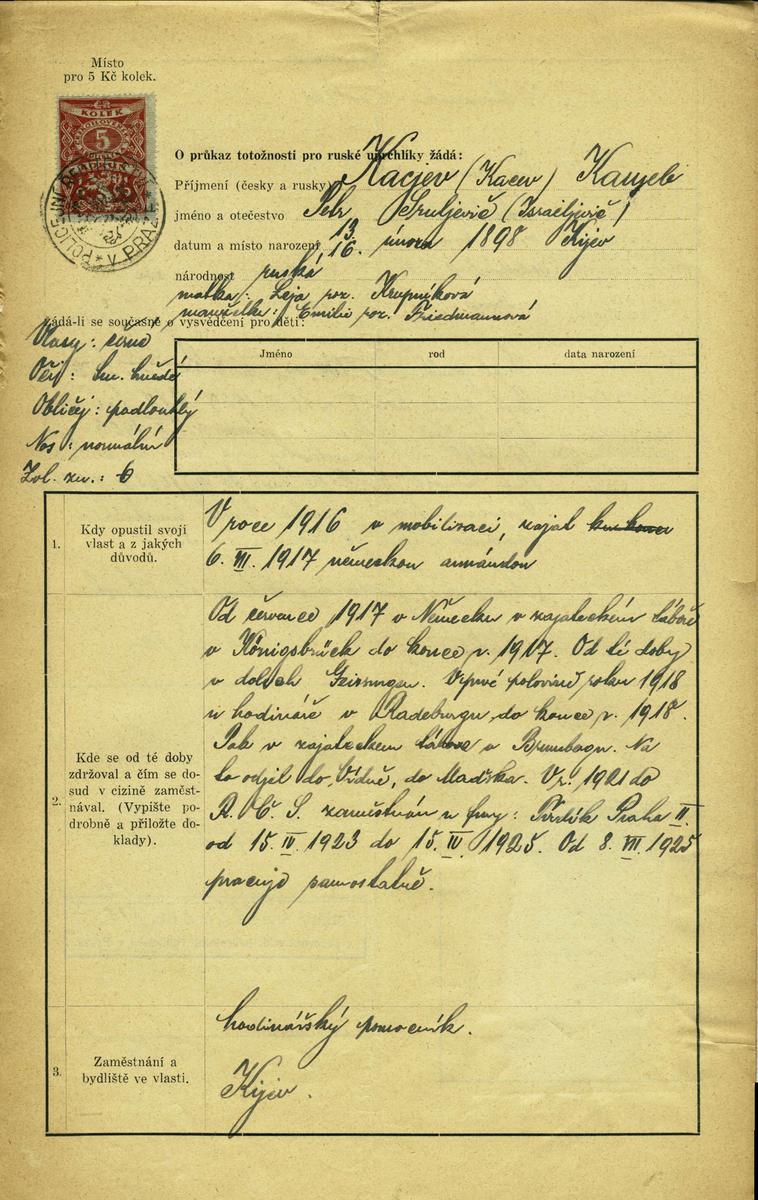 Místo
pro 5 Kč kolek.
KOLEK
5
POLICEJNÍ ŘEDITELSTVÍ * V PRAZE *
O průkaz totožnosti pro ruské uprchlíky žádá:
Příjmení (česky a rusky) Kacjev (Kacev)
jméno a otečestvo Petr Sruljevič (Israiljevič)
datum a místo narození 13./16. února 1898 Kijev
národnost ruská
matka: Leja roz. Krupníková
manželka: Emilie roz. Friedmannová
žádá-li se současně o vysvědčení pro děti:
Vlasy: černé
Oči: tm. hnědé
Obličej: podlouhlý
Nos: normální
Zvl. zn.: 0
Jméno rod data narození
1. Kdy opustil svoji vlast a z jakých důvodů.
V roce 1916 v mobilisaci, zajat
6. VII. 1917 německou armádou
2. Kde se od té doby zdržoval a čím se dosud v cizině zaměstnával. (Vypište podrobně a přiložte doklady).
Od července 1917 v Německu v zajateckém táboře
v Königsbrück do konce r. 1917. Od té doby
v dolech. V prvé polovině roku 1918
u hodináře v Radeburgu do konce r. 1918.
Pak v zajateckém táboře v. Na
to odjel do Vídně, do Maďarska. V r. 1921 do
R. Č. S. zaměstnán u firmy: Praha II.
od 15. IV. 1923 do 15. IV. 1925. Od 8. VII. 1925
pracuje samostatně.
3. Zaměstnání a bydliště ve vlasti.
hodinářský pomocník.
Kijev.